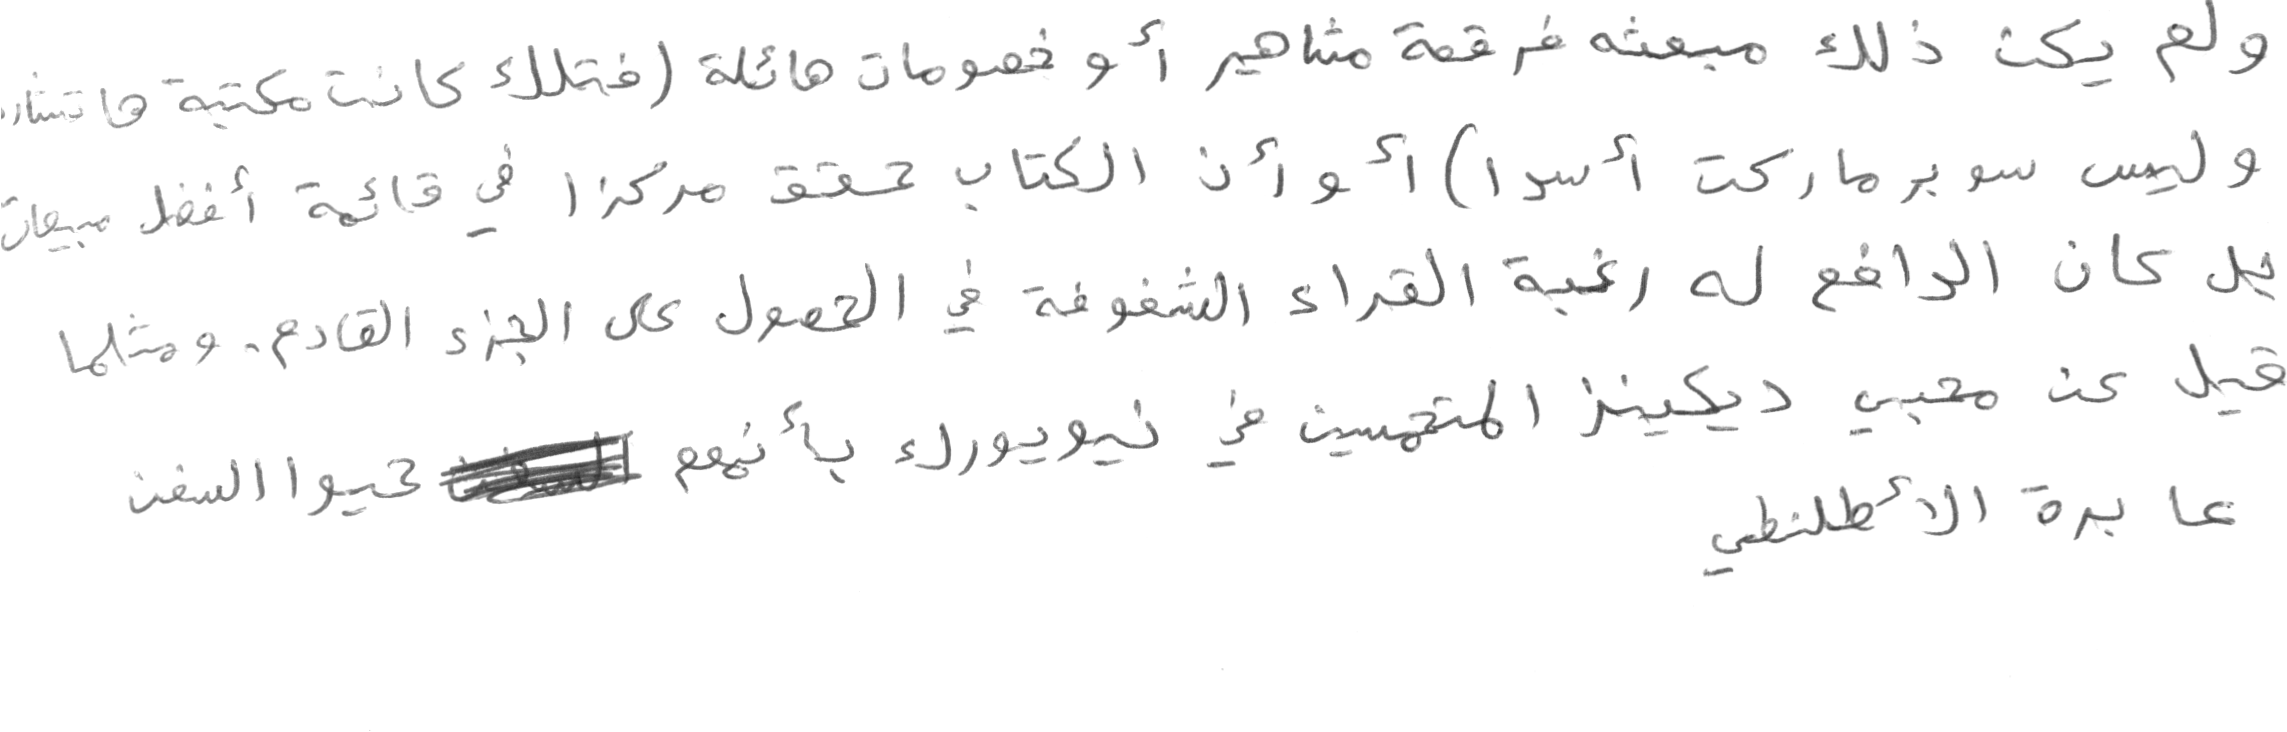 ولم يكن ذلك مبعثه فرقعة مشاهير أو خصومات هائلة (فتلك كانت مكتبة هاتشار
وليس سوبر ماركت أسدا) أو أن الكتاب حقق مركزا في قائمة أفضل مبيعات
بل كان الدافع له رغبة القراء الشغوفة في الحصول على الجزء القادم. ومثلما
قيل عن محبي ديكينز المتحمسين في نيويورك بأنهم حيوا السفن
عابرة الأطلنطي